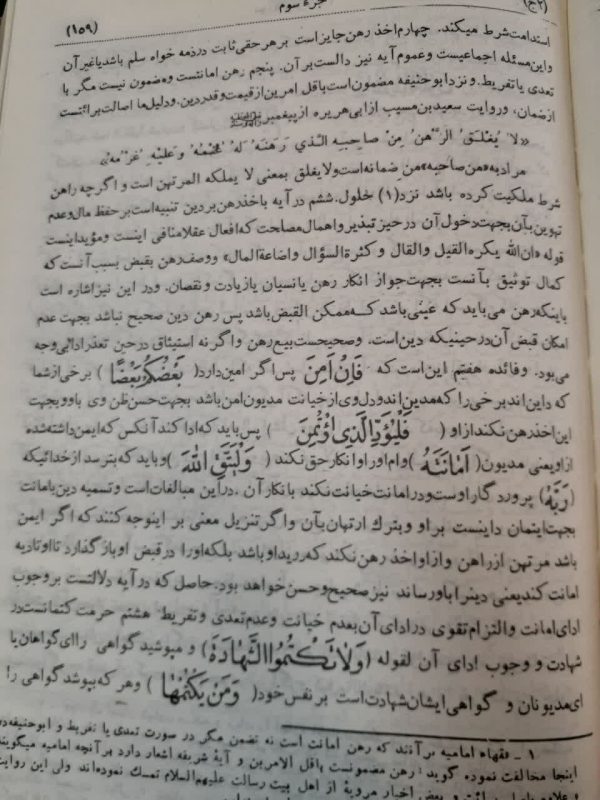 (ج۲) جزء سوم (۱۵۹)
استدامت شرط میکند. چهارم اخذ رهن جایز است بر هر حقی ثابت در ذمه خواه سلم باشد یا غیر آن
و این مسئله اجماعیست و عموم آیه نیز دالست بر آن. پنجم رهن امانتست و مضمون نیست مگر با
تعدی یا تفریط. و نزد ابو حنیفه مضمون است باقل امرین از قیمت و قدر دین. و دلیل ما اصالت برائتست
از ضمان، و روایت سعید بن مسیب از ابی هریره از پیغمبر
«لا یُغلَقُ الرَّهنُ مِنْ صاحِبِهِ الَّذي رَهَنَهُ لَهُ غُنْمُهُ وَعَلَیْهِ غُرْمُهُ»
مراد به «من صاحبه» من ضمانه است ولا یغلق بمعنی لا یملکه المرتهن است و اگرچه راهن
شرط ملکیت کرده باشد نزد (۱) حلول. ششم در آیه باخذ رهن بر دین تنبیه است بر حفظ مال و عدم
تهوین بآن بجهت دخول آن در حیز تبذیر و اهمال مصلحت که افعال عقلا منافی اینست و مؤید اینست
قوله «ان الله یکره القیل والقال و کثرة السؤال واضاعة المال» ووصف رهن بقبض بسبب آنست که
کمال توثیق بآنست بجهت جواز انکار رهن یا نسیان یا زیادت و نقصان. ودر این نیز اشاره است
باینکه رهن می باید که عینی باشد که ممکن القبض باشد پس رهن دین صحیح نباشد بجهت عدم
امکان قبض آن در حینیکه دین است. وصحیحست بیع رهن و اگر نه استیثاق در حین تعذر ادا بی وجه
می بود. وفائده هفتم این است که فَاِنْ اَمِنَ پس اگر امین دارد ( بَعْضُکُمْ بَعْضًا ) برخی از شما
که داین اند برخی را که مدین اند و دل وی از خیانت مدیون امن باشد بجهت حسن ظن وی باو و بجهت
این اخذ رهن نکند از او ( فَلْیُؤَدِّ الَّذِی اؤْتُمِنَ ) پس باید که ادا کند آنکس که ایمن داشته شده
از او یعنی مدیون ( اَمَانَتَهُ ) وام او را و انکار حق نکند ( وَلْیَتَّقِ اللّٰهَ ) و باید که بترسد از خدائیکه
(رَبَّهُ) پروردگار اوست و در امانت خیانت نکند بانکار آن. در این مبالغات است و تسمیه دین بامانت
بجهت ایتمان داینست بر او و بترک ارتهان بآن و اگر تنزیل معنی بر اینوجه کنند که اگر ایمن
باشد مرتهن از راهن و از او اخذ رهن نکند که در ید او باشد بلکه او را در قبض او باز گذارد تا او تادیه
امانت کند یعنی دین را باو رساند نیز صحیح و حسن خواهد بود. حاصل که در آیه دلالتست بر وجوب
ادای امانت والتزام تقوی در ادای آن بعدم خیانت و عدم تعدی و تفریط هشتم حرمت کتمانست در
شهادت و وجوب ادای آن لقوله (وَلَا تَکْتُمُوا الشَّهَادَةَ) و مپوشید گواهی را ای گواهان یا
ای مدیونان و گواهی ایشان شهادت است بر نفس خود ( وَمَنْ یَکْتُمْهَا ) و هر که بپوشد گواهی را
۱ - فقهاء امامیه بر آنند که رهن امانت است نه تضمن مگر در صورت تعدی یا تفریط و ابو حنیفه در
اینجا مخالفت نموده گوید: رهن مضمونست باقل الامرین و آیهٔ شریفه اشعار دارد بر آنچه امامیه میگویند
و بعض اخبار مرویهٔ از اهل بیت رسالت علیهم السلام تمسک نموده اند ولی این روایت